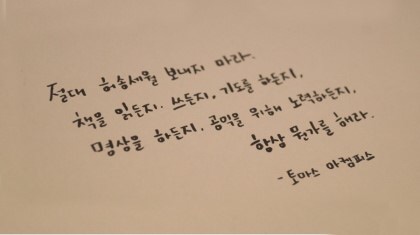 절대 허송세월 보내지 마라.
책을 읽든지. 쓰든지, 기도를 하든지,
명상을 하든지. 공익을 위해 노력하든지,
항상 뭔가를 해라.
- 토마스 아켐피스